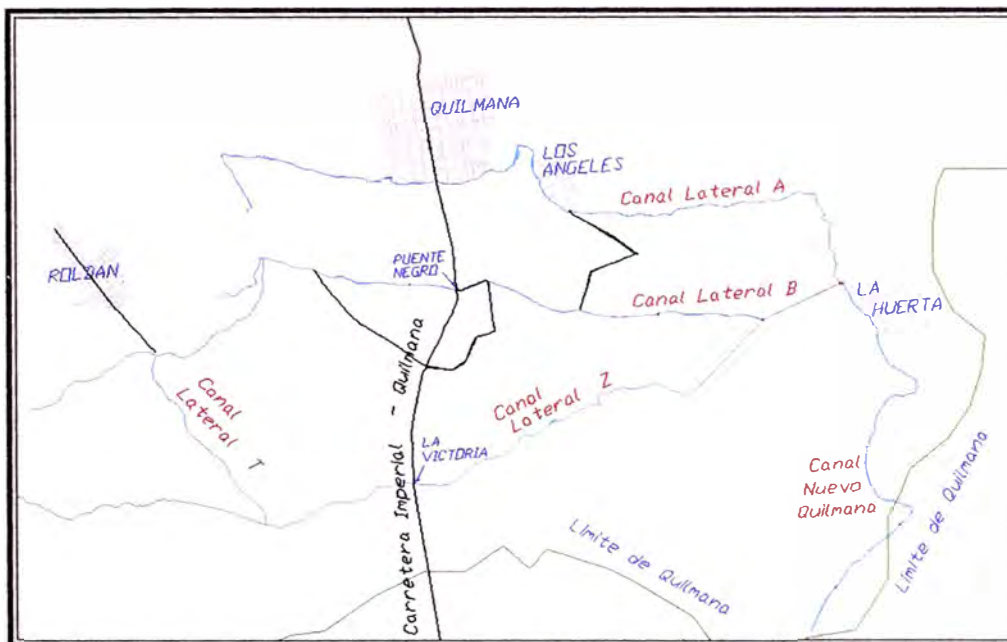 QUILMANA
LOS
ANGELES
Canal Lateral A
ROLDAN
PUENTE
NEGRO
Canal Lateral B
LA
HUERTA
Carretera Imperial - Quilmana
Canal
Lateral T
Canal
Lateral Z
LA
VICTORIA
Canal
Nuevo
Quilmana
Limite de Quilmana
Limite de Quilmana